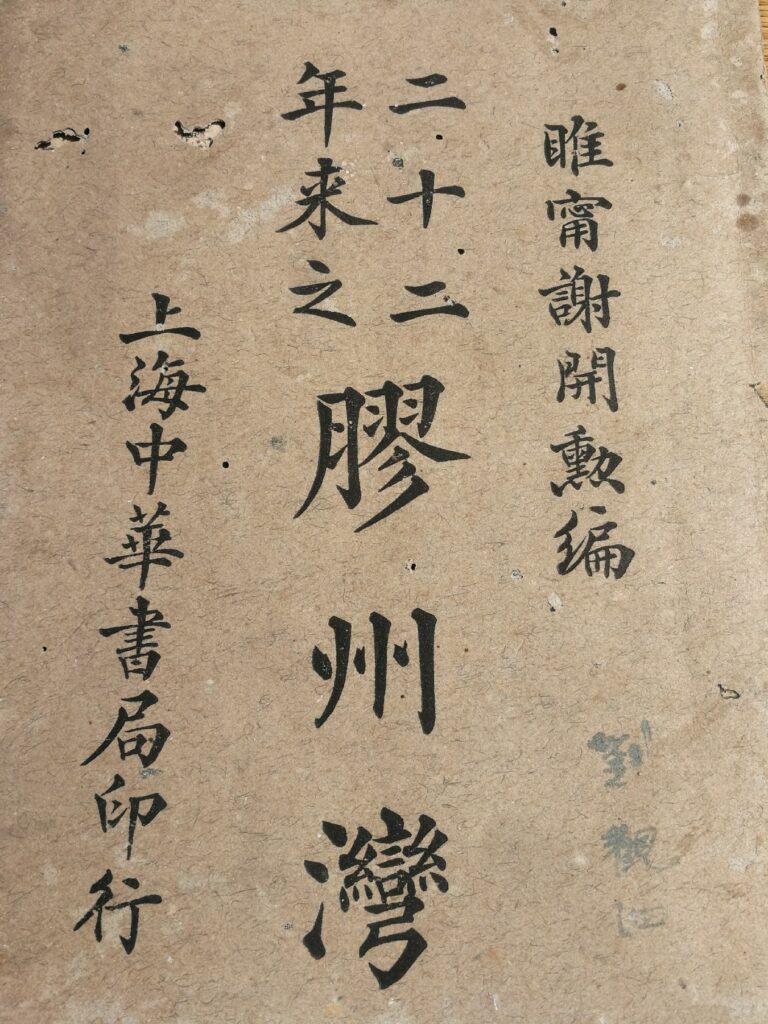 睢甯謝開勲編
二十二
年来之
膠州灣
上海中華書局印行